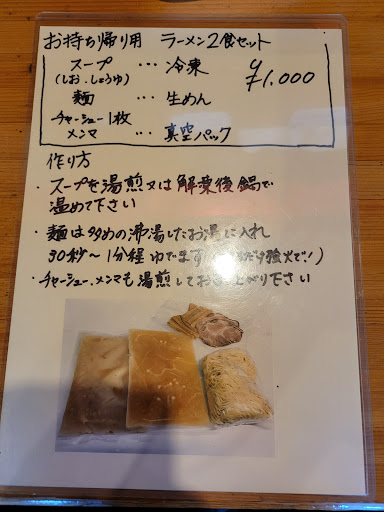 お持ち帰り用 ラーメン2食セット
スープ … 冷凍 ¥1.000
(しお.しょうゆ)
麺 … 生めん
チャーシュー1枚
メンマ … 真空パック
作り方
・スープを湯煎又は解凍後鍋で
温めて下さい
・麺は多めの沸湯したお湯に入れ
30秒〜1分程ゆでます だけ強火で!)
・チャーシュー.メンマも湯煎してお召し上がり下さい